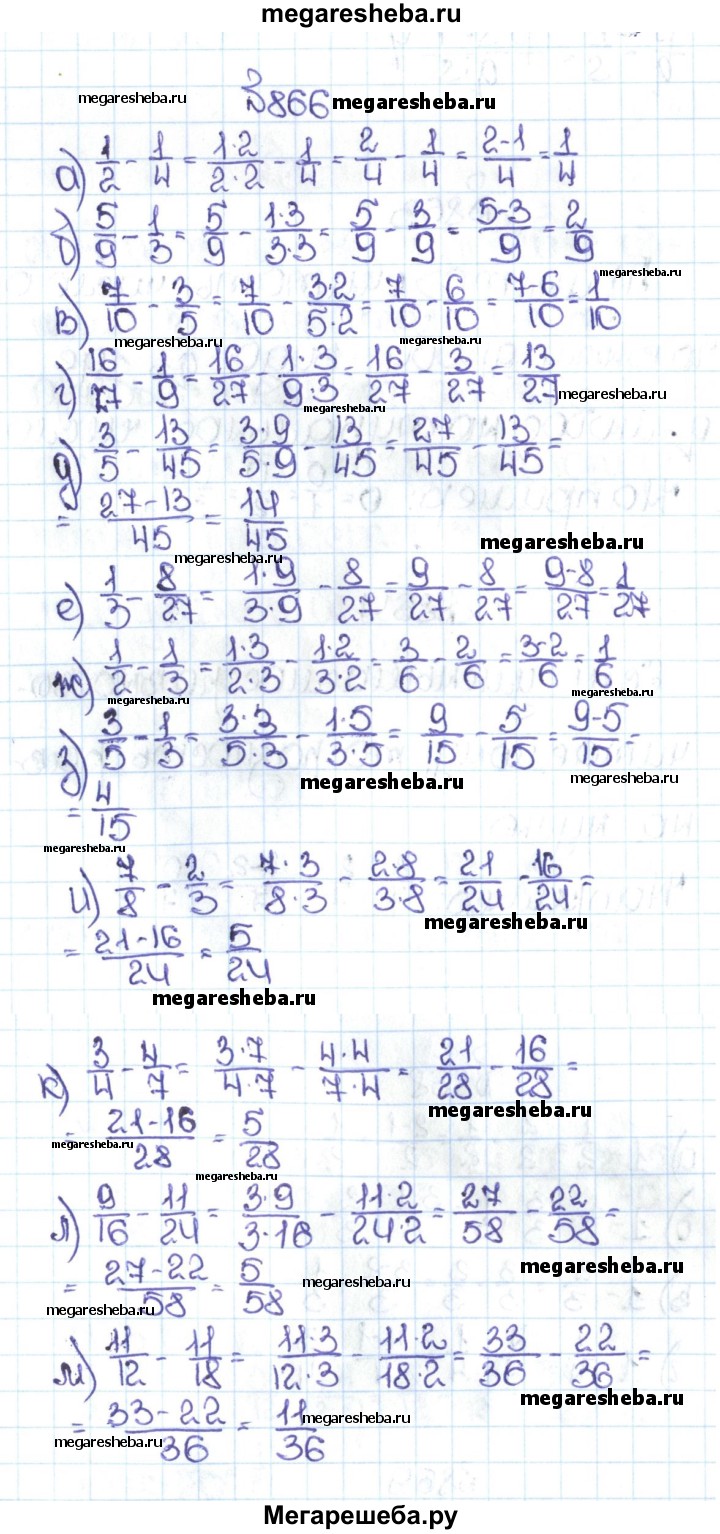 megaresheba.ru
№866
megaresheba.ru megaresheba.ru
а) 1/2 - 1/4 = 1·2/2·2 - 1/4 = 2/4 - 1/4 = 2-1/4 = 1/4
б) 5/9 - 1/3 = 5/9 - 1·3/3·3 = 5/9 - 3/9 = 5-3/9 = 2/9
megaresheba.ru
в) 7/10 - 3/5 = 7/10 - 3·2/5·2 = 7/10 - 6/10 = 7-6/10 = 1/10
megaresheba.ru megaresheba.ru
г) 16/27 - 1/9 = 16/27 - 1·3/9·3 = 16/27 - 3/27 = 13/27
megaresheba.ru megaresheba.ru
д) 3/5 - 13/45 = 3·9/5·9 - 13/45 = 27/45 - 13/45 =
= 27-13/45 = 14/45
megaresheba.ru megaresheba.ru
е) 1/3 - 8/27 = 1·9/3·9 - 8/27 = 9/27 - 8/27 = 9-8/27 = 1/27
ж) 1/2 - 1/3 = 1·3/2·3 - 1·2/3·2 = 3/6 - 2/6 = 3-2/6 = 1/6
megaresheba.ru megaresheba.ru
з) 3/5 - 1/3 = 3·3/5·3 - 1·5/3·5 = 9/15 - 5/15 = 9-5/15 =
megaresheba.ru megaresheba.ru
= 4/15
megaresheba.ru
и) 7/8 - 2/3 = 7·3/8·3 - 2·8/3·8 = 21/24 - 16/24 =
megaresheba.ru
= 21-16/24 = 5/24
megaresheba.ru
к) 3/4 - 4/7 = 3·7/4·7 - 4·4/7·4 = 21/28 - 16/28 =
megaresheba.ru
= 21-16/28 = 5/28
megaresheba.ru megaresheba.ru
л) 9/16 - 11/24 = 3·9/3·16 - 11·2/24·2 = 27/58 - 22/58 =
megaresheba.ru
= 27-22/58 = 5/58
megaresheba.ru megaresheba.ru
м) 11/12 - 11/18 = 11·3/12·3 - 11·2/18·2 = 33/36 - 22/36 =
megaresheba.ru
= 33-22/36 = 11/36
megaresheba.ru megaresheba.ru
Мегарешеба.ру